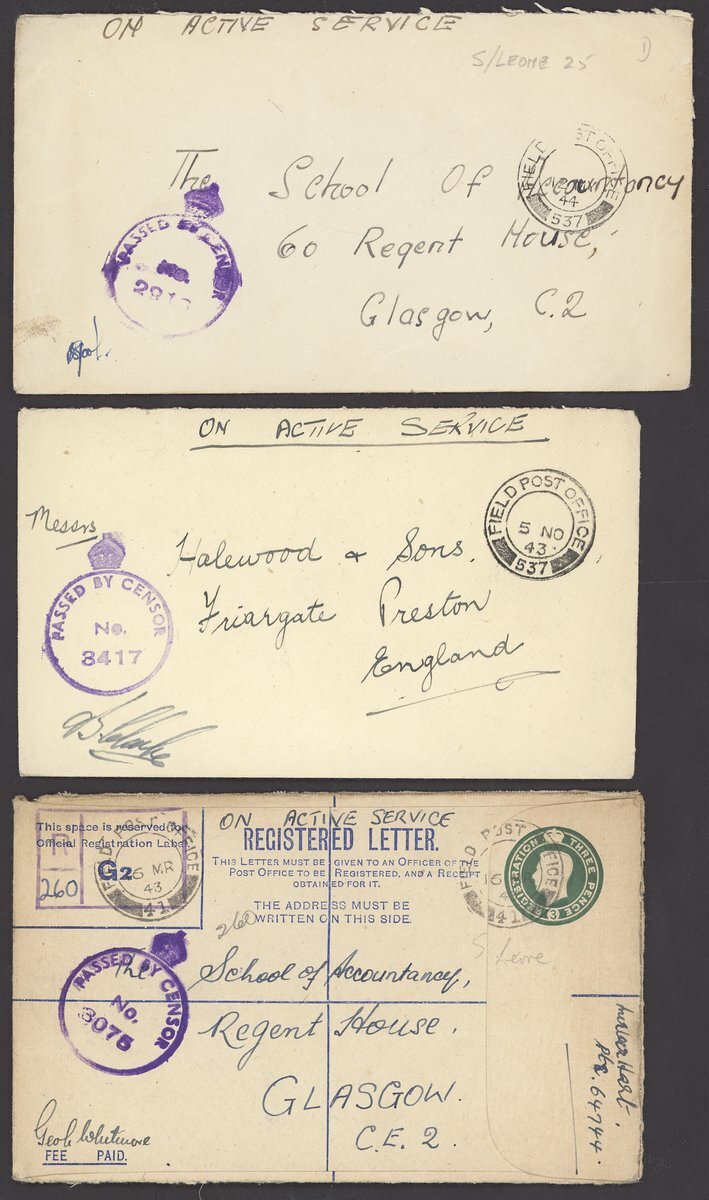 ON ACTIVE SERVICE
S/LEONE 25
1)
The School Of Accountancy
60 Regent House,
Glasgow, C.2
FIELD POST OFFICE
44
537
PASSED BY CENSOR
No.
ON ACTIVE SERVICE
Messrs
Halewood & Sons.
Friargate Preston
England
FIELD POST OFFICE
5 NO
43
537
PASSED BY CENSOR
No.
3417
ON ACTIVE SERVICE
This space is reserved for
Official Registration Label
R
G2
260
FIELD POST OFFICE
6 MR
43
41
REGISTERED LETTER.
THIS LETTER MUST BE GIVEN TO AN OFFICER OF THE
POST OFFICE TO BE REGISTERED, AND A RECEIPT
OBTAINED FOR IT.
THE ADDRESS MUST BE
WRITTEN ON THIS SIDE.
260
FIELD POST OFFICE
41
REGISTRATION THREE PENCE
(3)
S Leone
The School of Accountancy,
Regent House.
GLASGOW.
C.E. 2.
PASSED BY CENSOR
No.
3075
Geo. C. Whitmore
FEE PAID.
Pte. 64744.